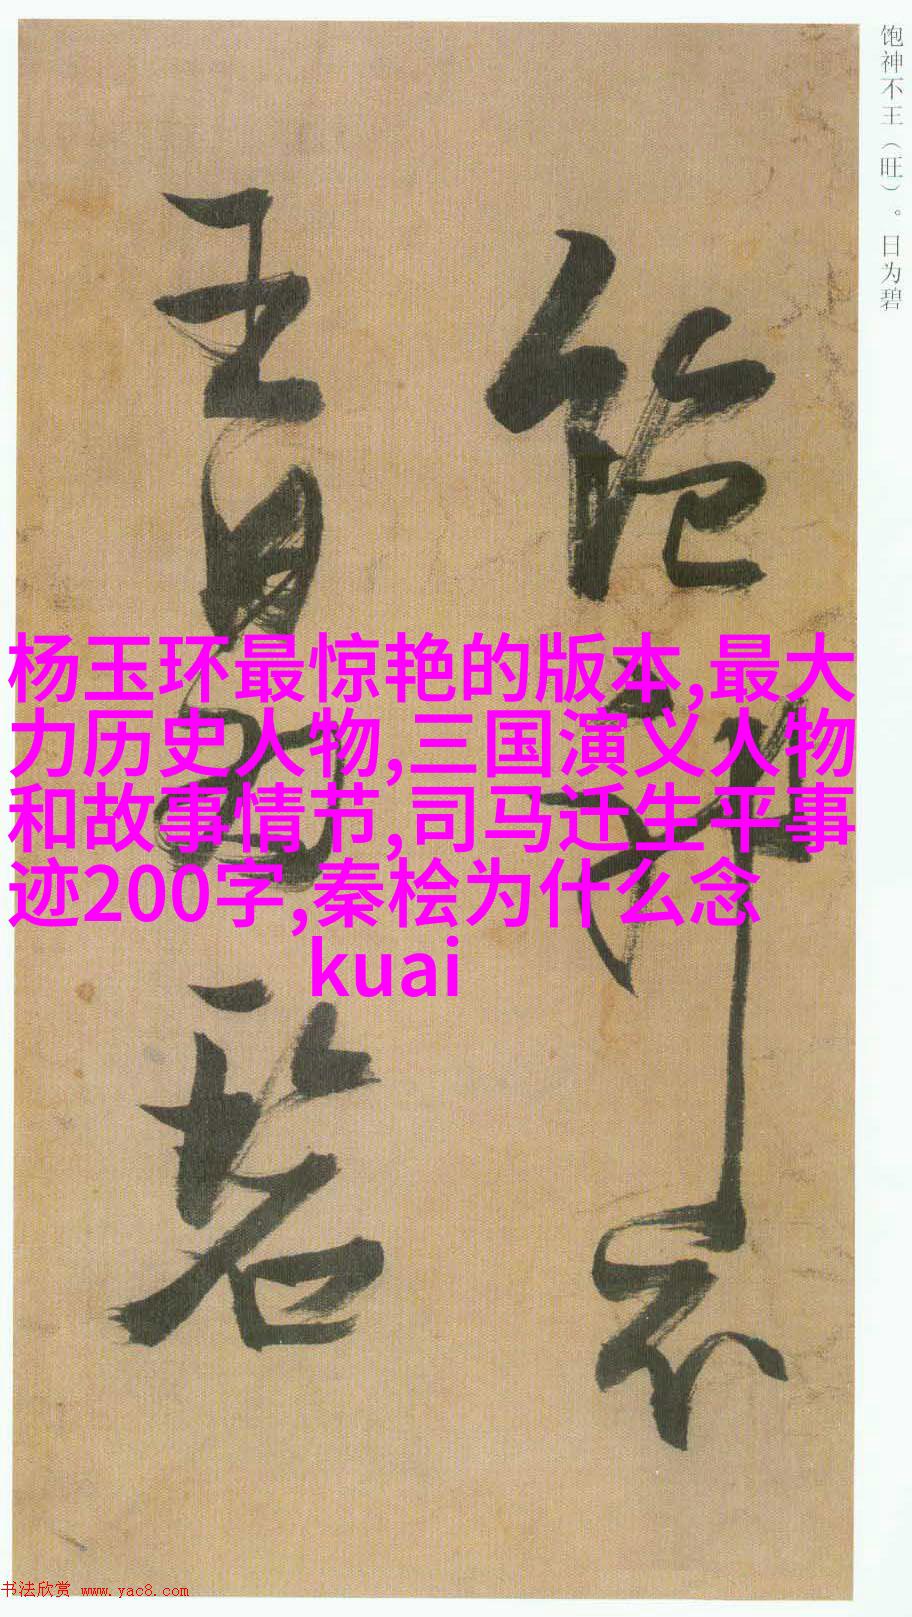 饱神不王（旺）。日为碧
饱神不
王日为碧
杨玉环最惊艳的版本,最大
力历史人物,三国演义人物
和故事情节,司马迁生平事
迹200字,秦桧为什么念
kuai
书法欣赏 www.yac8.com